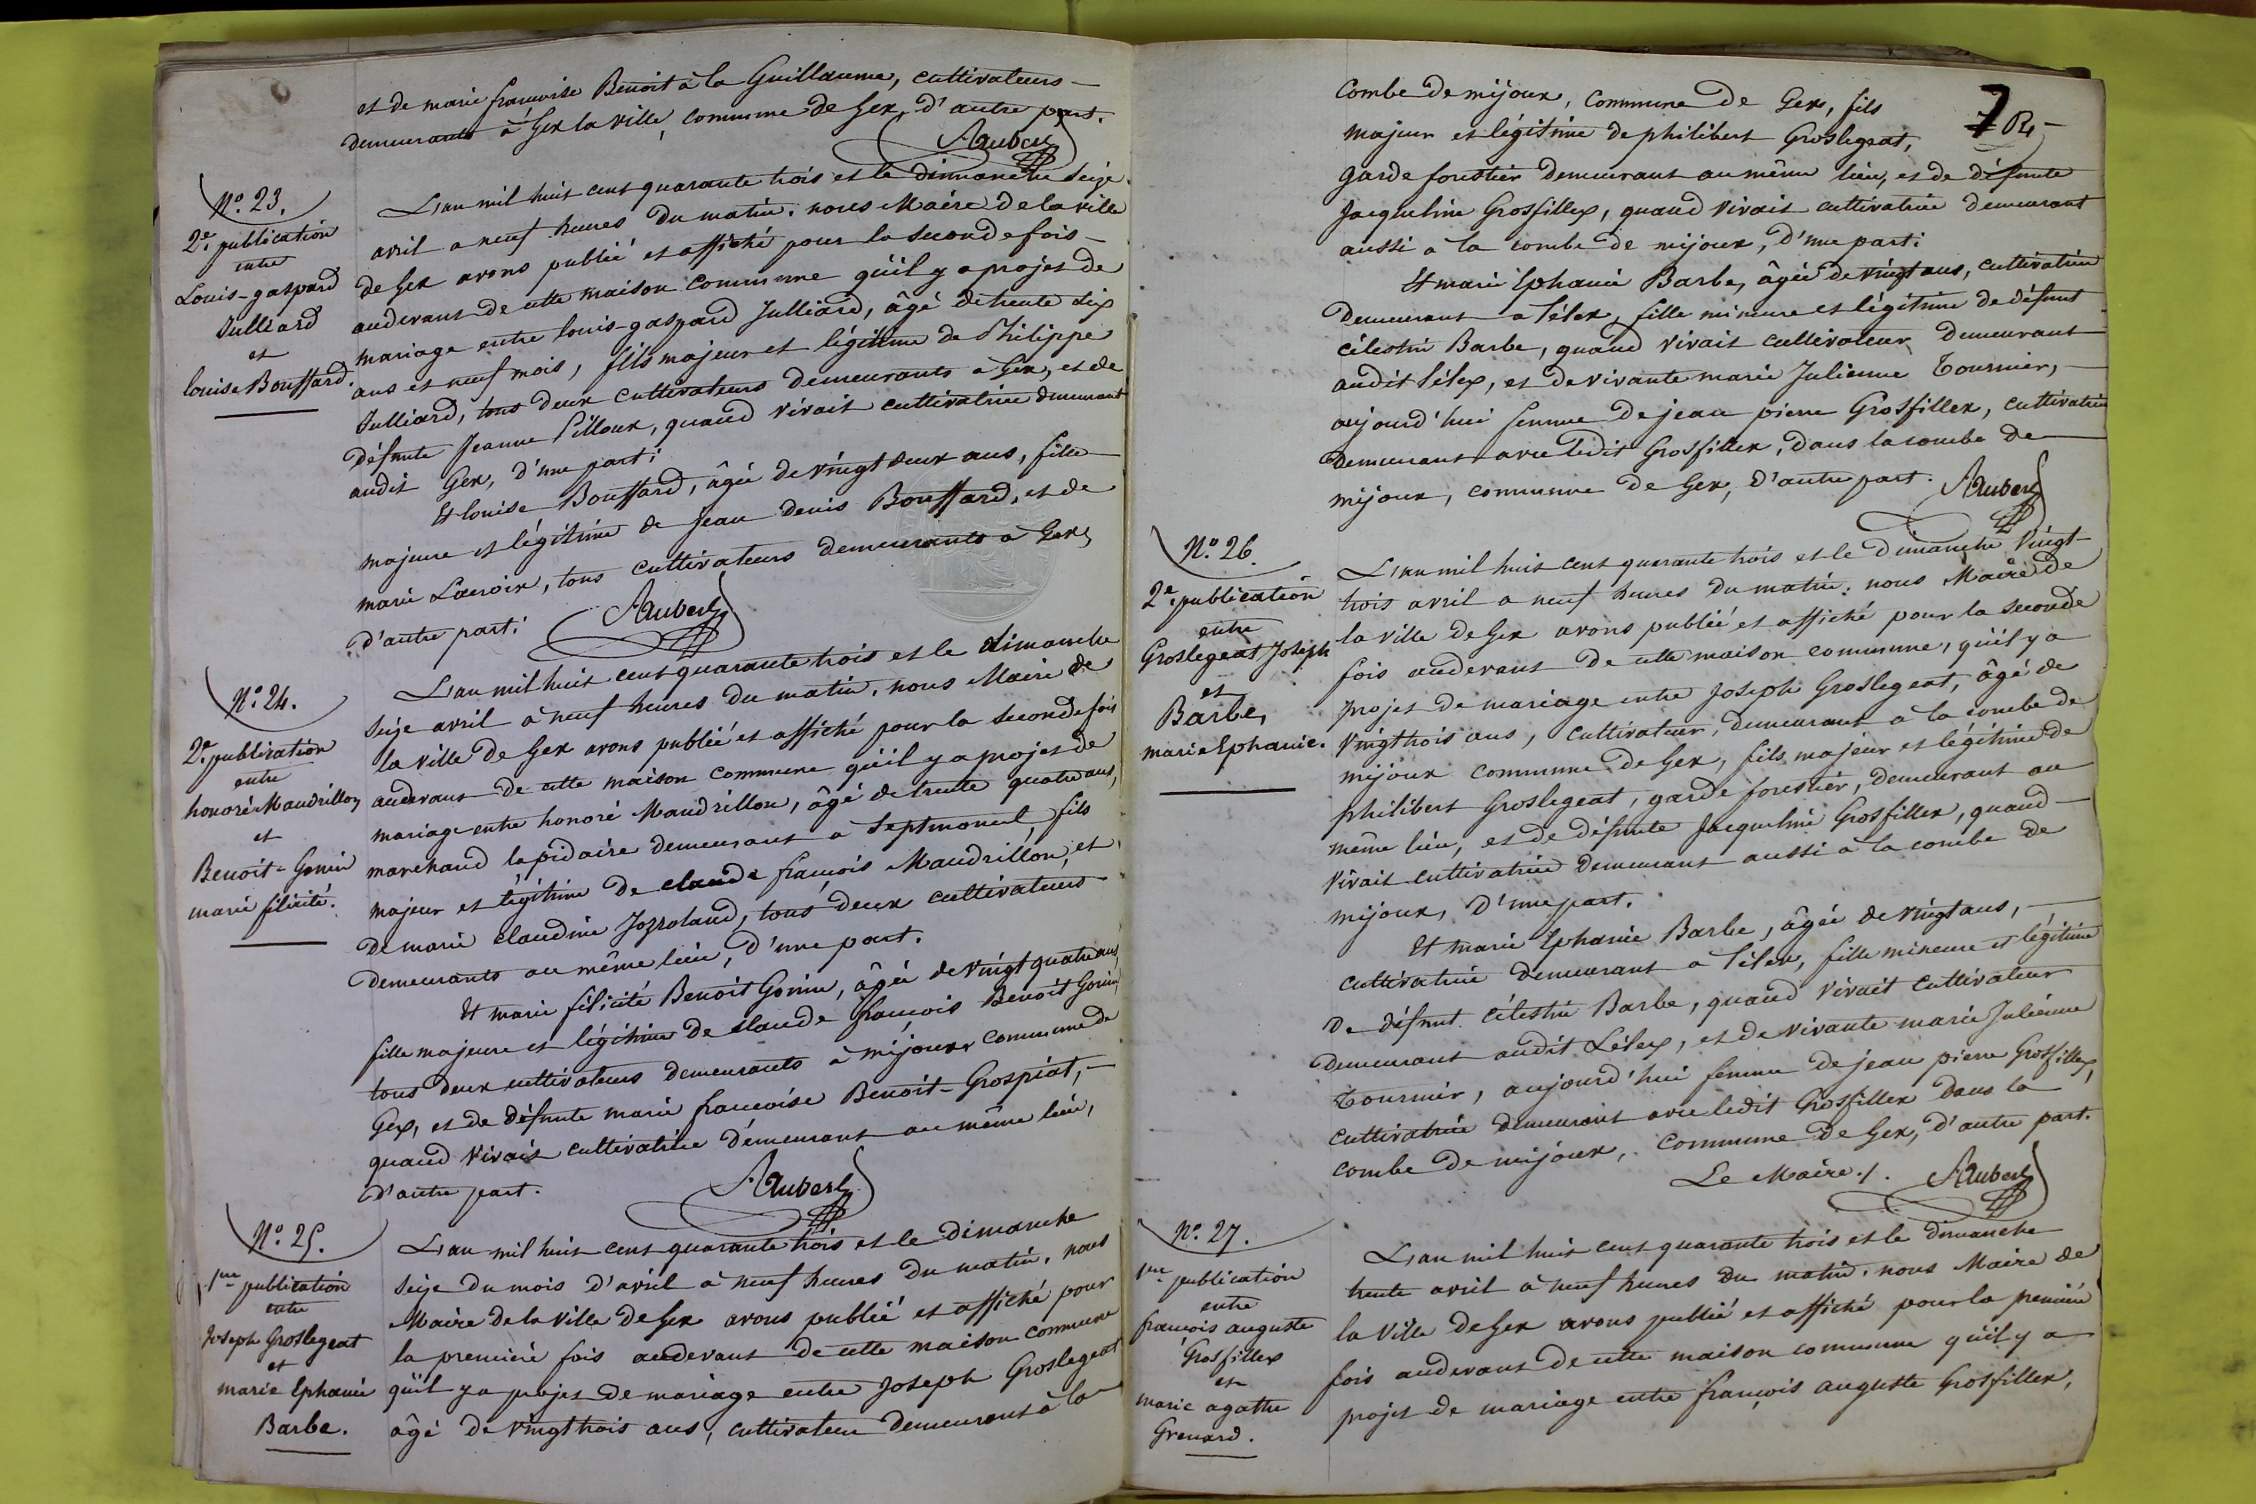 et de marie françoise Benoit à la Guillaume, cultivateurs
demeurants à Gex la ville, commune de Gex, d'autre part.
Aubert
N.° 23.
2.e publication
entre
Louis-gaspard
Julliard
et
louise Bouffard.
L'an mil huit cent quarante trois et le dimanche seize
avril a neuf heures du matin, nous Maire de la ville
de Gex avons publié et affiché pour la seconde fois
audevant de cette maison commune qu'il y a projet de
mariage entre louis-gaspard Julliard, âgé de trente six
ans et neuf mois, fils majeur et légitime de Philippe
Julliard, tous deux cultivateurs demeurants à Gex, et de
défunte Jeanne Pilloux, quand vivait cultivatrice demeurant
audit Gex, d'une part;
Et louise Bouffard, âgée de vingt deux ans, fille
majeure et légitime de Jean denis Bouffard, et de
marie Lacroix, tous cultivateurs demeurants à Gex,
d'autre part;
Aubert
N.° 24.
2.e publication
entre
honoré Mandrillon
et
Benoit-Gonin
marie félicité.
L'an mil huit cent quarante trois et le dimanche
seize avril à neuf heures du matin, nous Maire de
la ville de Gex avons publié et affiché pour la seconde fois
audevant de cette maison commune qu'il y a projet de
mariage entre honoré Mandrillon, âgé de trente quatre ans,
marchand lapidaire demeurant à Septmoncel, fils
majeur et légitime de claude françois Mandrillon, et
de marie claudine Jozroland, tous deux cultivateurs
demeurants au même lieu, d'une part.
Et marie félicité Benoit Gonin, âgée de vingt quatre ans,
fille majeure et légitime de claude françois Benoit Gonin,
tous deux cultivateurs demeurants à mijoux commune de
Gex, et de défunte marie françoise Benoit-Grospiat,
quand vivait cultivatrice demeurant au même lieu,
d'autre part.
Aubert
N.° 25.
1re publication
entre
Joseph Groslegeat
et
marie Ephanie
Barbe.
L'an mil huit cent quarante trois et le dimanche
seize du mois d'avril à neuf heures du matin, nous
Maire de la Ville de Gex avons publié et affiché pour
la première fois audevant de cette maison commune
qu'il y a projet de mariage entre Joseph Groslegeat
âgé de vingt trois ans, cultivateur demeurant à la
7
combe de mijoux, commune de Gex, fils
majeur et légitime de philibert Groslegeat,
garde forestier demeurant au même lieu, et de défunte
Jacqueline Grosfillex, quand vivait cultivatrice demeurant
aussi à la combe de mijoux, d'une part;
Et marie Ephanie Barbe, âgée de vingt ans, cultivatrice
demeurant a lélex, fille mineure et légitime de défunt
célestin Barbe, quand vivait cultivateur demeurant
audit lélex, et de vivante marie Julienne Tournier,
aujourd'hui femme de jean pierre Grosfillex, cultivatrice
demeurant avec ledit Grosfillex, dans la combe de
mijoux, commune de Gex, d'autre part.
Aubert
N.° 26.
2.e publication
entre
Groslegeat Joseph
et
Barbe,
marie Ephanie.
L'an mil huit cent quarante trois et le dimanche vingt
trois avril a neuf heures du matin; nous Maire de
la ville de Gex avons publié et affiché pour la seconde
fois audevant de cette maison commune, qu'il y a
projet de mariage entre Joseph Groslegeat, âgé de
vingt trois ans, cultivateur, demeurant à la combe de
mijoux commune de Gex, fils majeur et légitime de
philibert Groslegeat, garde forestier, demeurant au
même lieu, et de défunte Jacqueline Grosfillex, quand
vivait cultivatrice demeurant aussi à la combe de
mijoux, d'une part.
Et marie Ephanie Barbe, âgée de vingt ans,
cultivatrice demeurant a lélex, fille mineure et légitime
de défunt célestin Barbe, quand vivait cultivateur
demeurant audit Lélex, et de vivante marie Julienne
Tournier, aujourd'hui femme de jean pierre Grosfillex,
cultivatrice demeurant avec ledit Grosfillex dans la
combe de mijoux, commune de Gex, d'autre part.
Le Maire. Aubert
N.° 27.
1re publication
entre
françois auguste
Grosfillex
et
marie agathe
Grenard.
L'an mil huit cent quarante trois et le dimanche
trente avril à neuf heures du matin, nous Maire de
la Ville de Gex avons publié et affiché pour la première
fois audevant de cette maison commune qu'il y a
projet de mariage entre françois auguste Grosfillex,